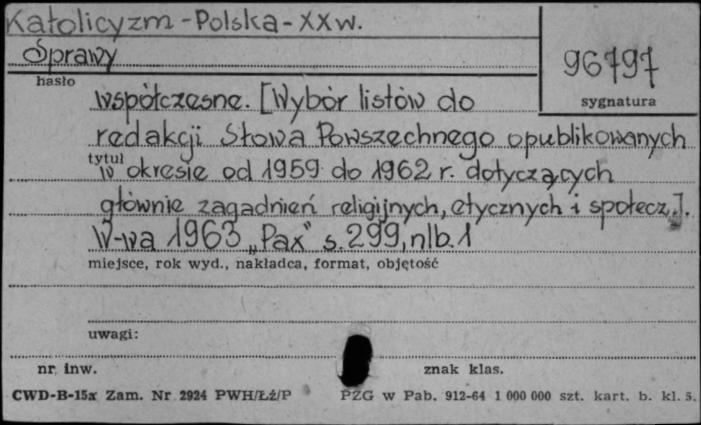 Katolicyzm - Polska - XX w.
Sprawy
hasło
96797
sygnatura
współczesne. [Wybór listów do
redakcji Słowa Powszechnego opublikowanych
tytuł
w okresie od 1959 do 1962 r. dotyczących
głównie zagadnień religijnych, etycznych i społecz.].
W-wa 1963 „Pax" s. 299, nlb. 1
miejsce, rok wyd., nakładca, format, objętość
uwagi:
nr inw.
znak klas.
CWD-B-15a Zam. Nr 2924 PWH/Łź/P
PZG w Pab. 912-64 1 000 000 szt. kart. b. kl. 5.